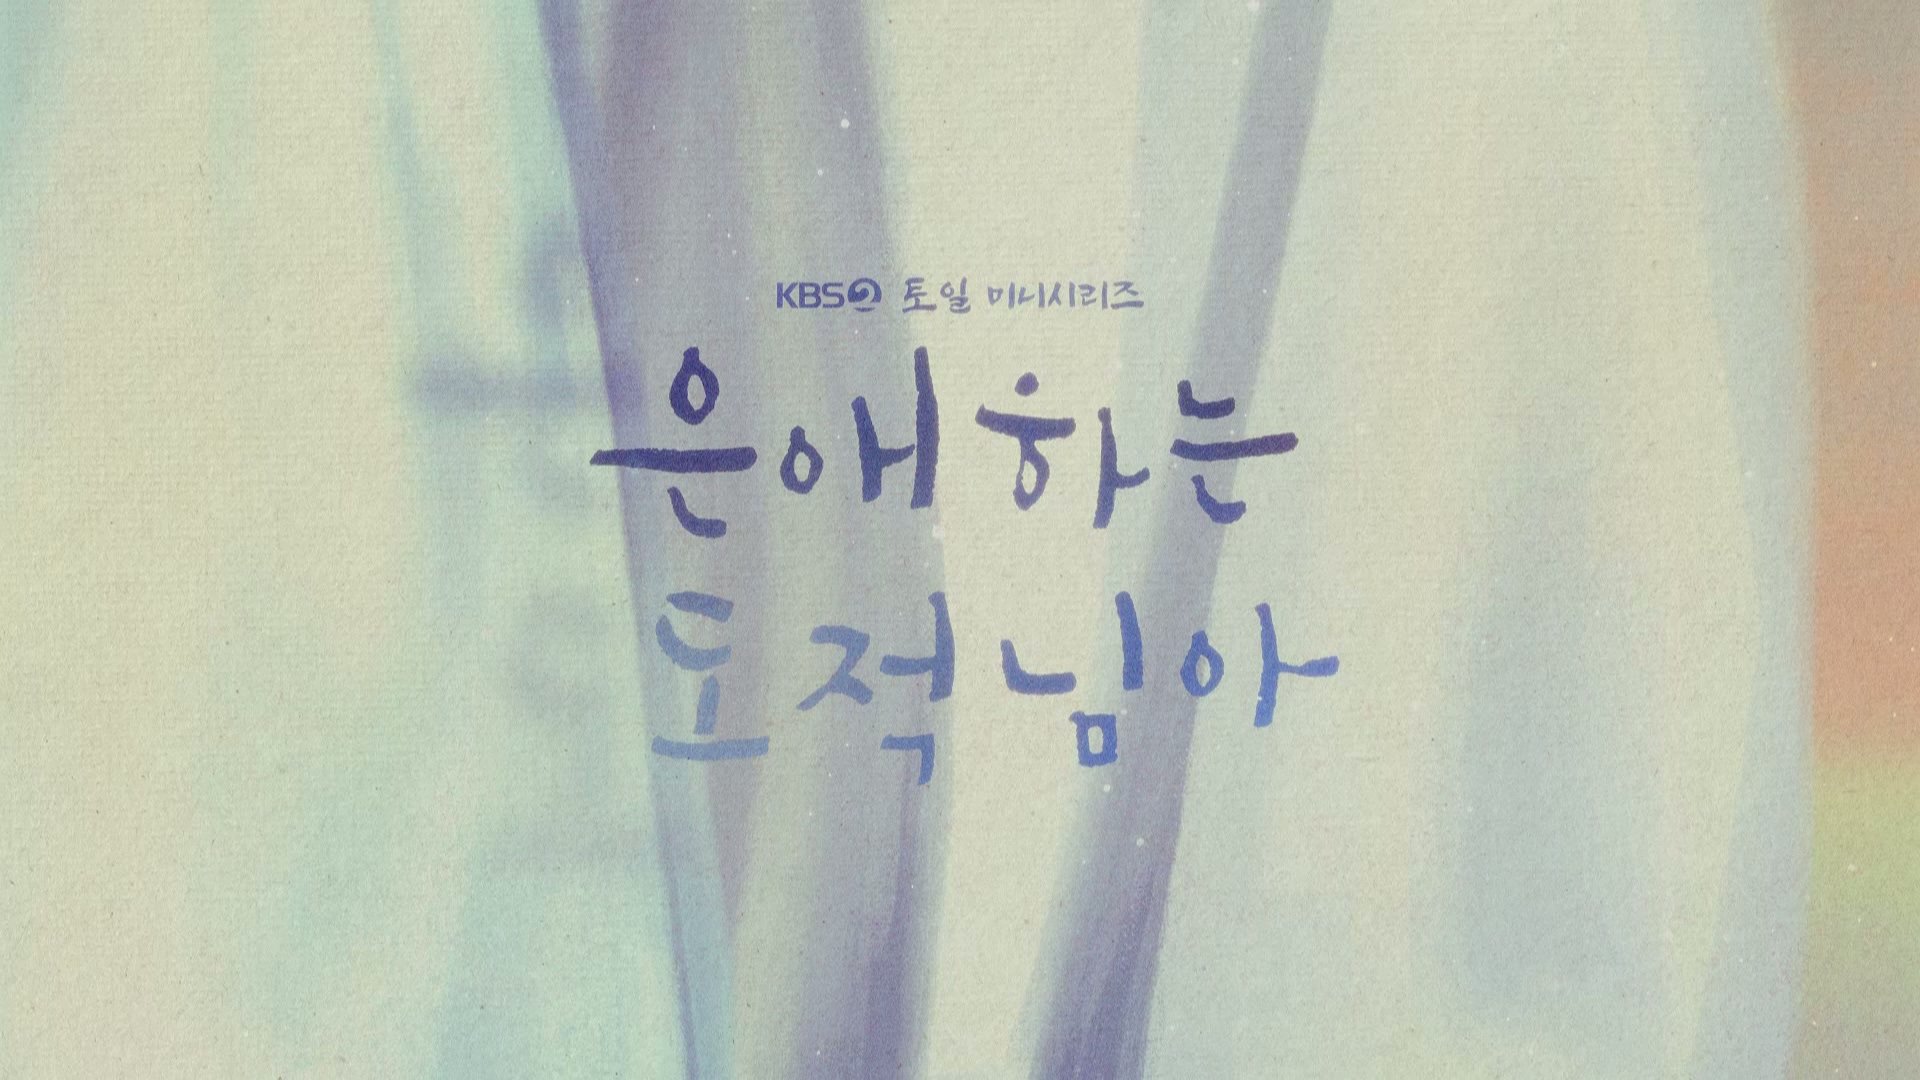 KBS2 토일 미니시리즈
은애하는
도적님아